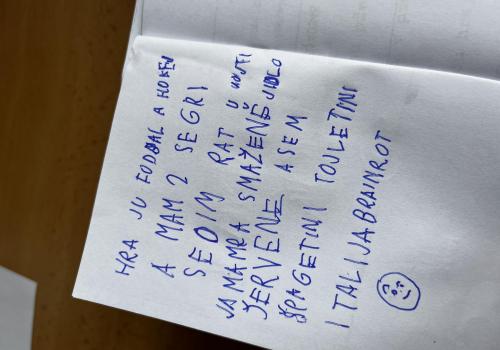 HRA JU FODBAL A HOKEJ
A MAM 2 SEGRI
SEDIM RAT U
JA MAMRA SMAŽENĚ JIDLO
ŠERVENE ASEM
ŠPAGETINI TOJLETINI
ITALIJABRAINROT